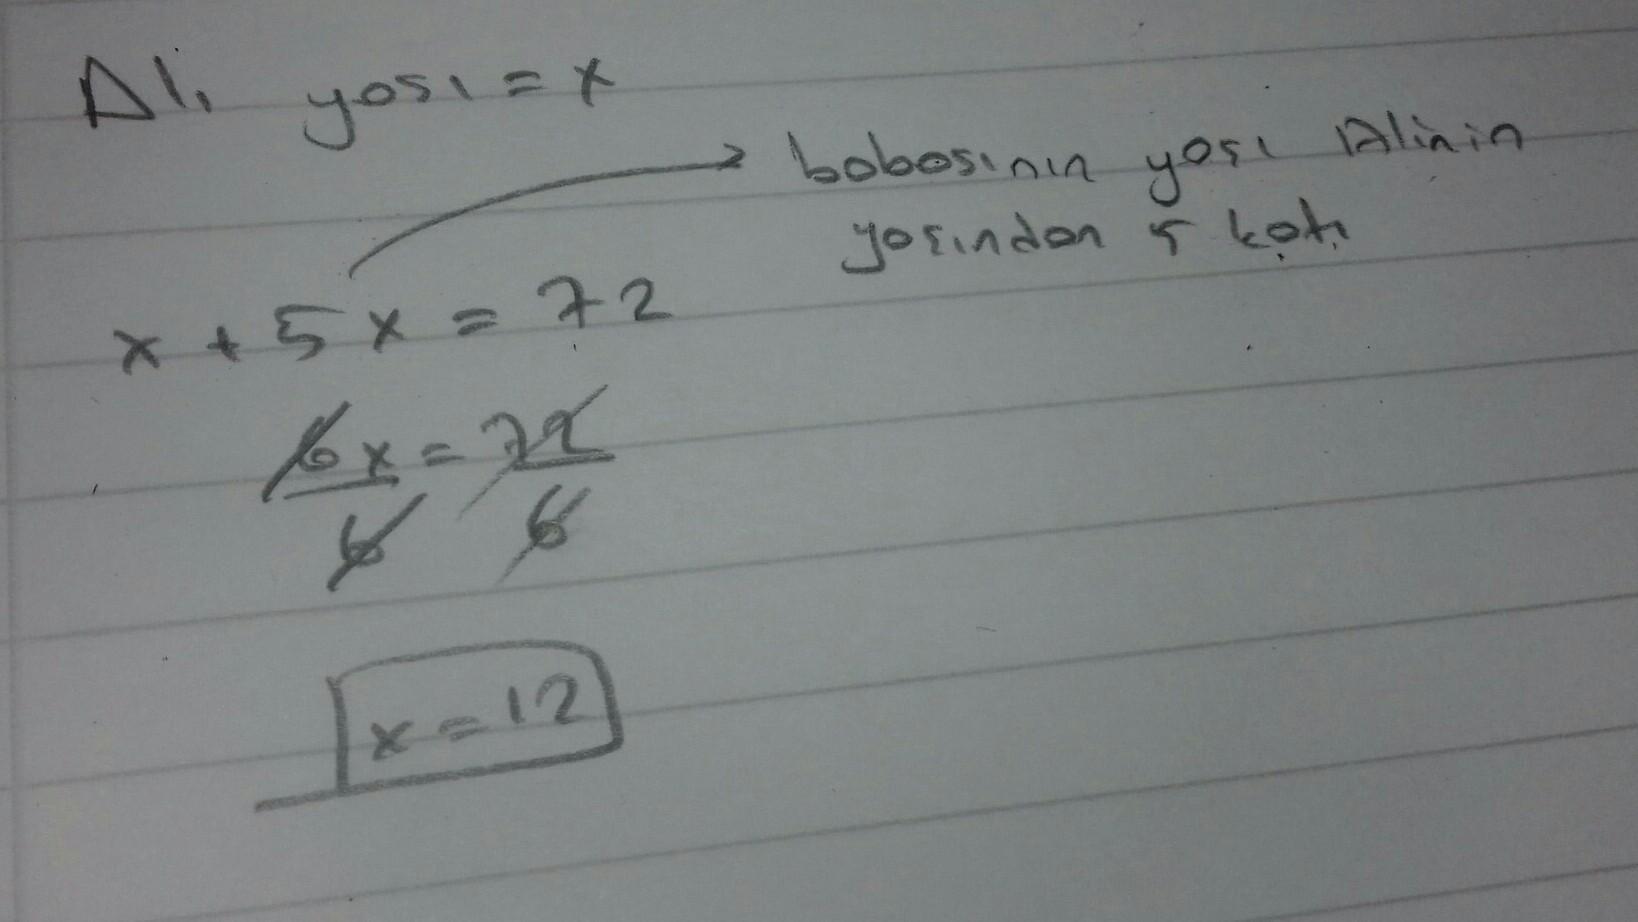 Ali yaşı = x
babasının yaşı Alinin
yaşından 5 katı
x + 5x = 72
6x = 72
6 6
x = 12